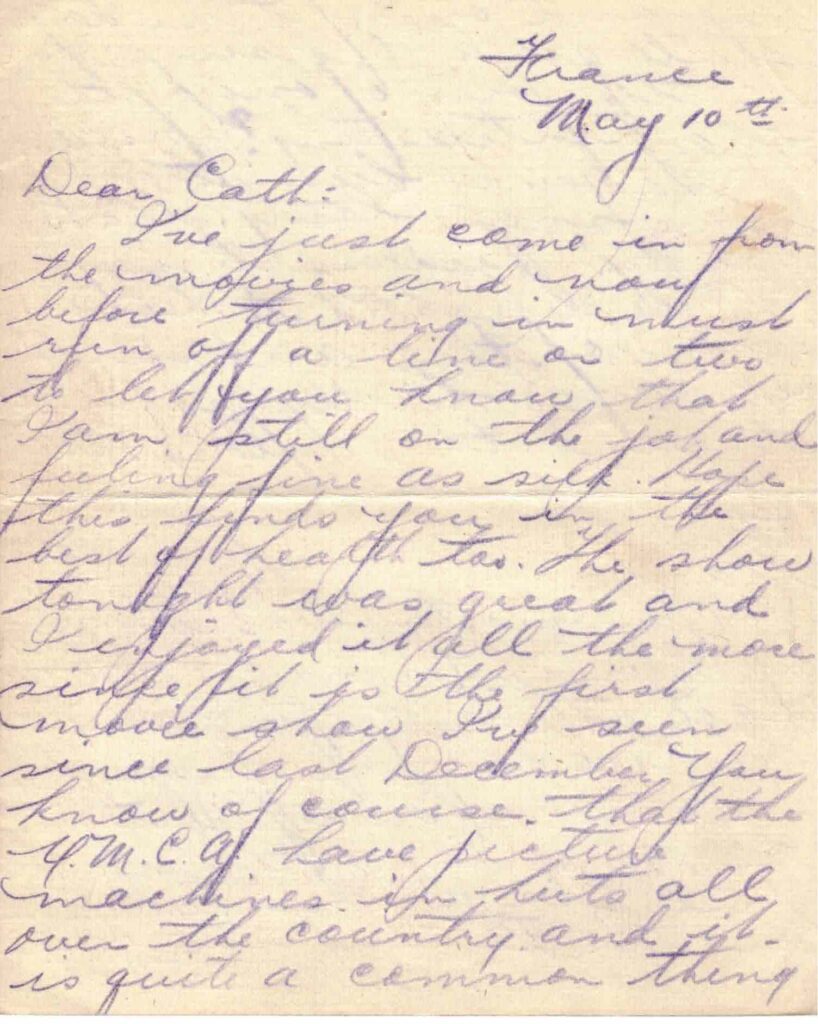 France
May 10th
Dear Cath:
I've just come in from
the movies and now
before turning in must
run off a line or two
to let you know that
I am still on the job and
feeling fine as silk. Hope
this finds you in the
best of health too. The show
tonight was great and
I enjoyed it all the more
since it is the first
movie show I've seen
since last December. You
know of course that the
Y.M.C.A. have picture
machines in huts all
over the country and it
is quite a common thing